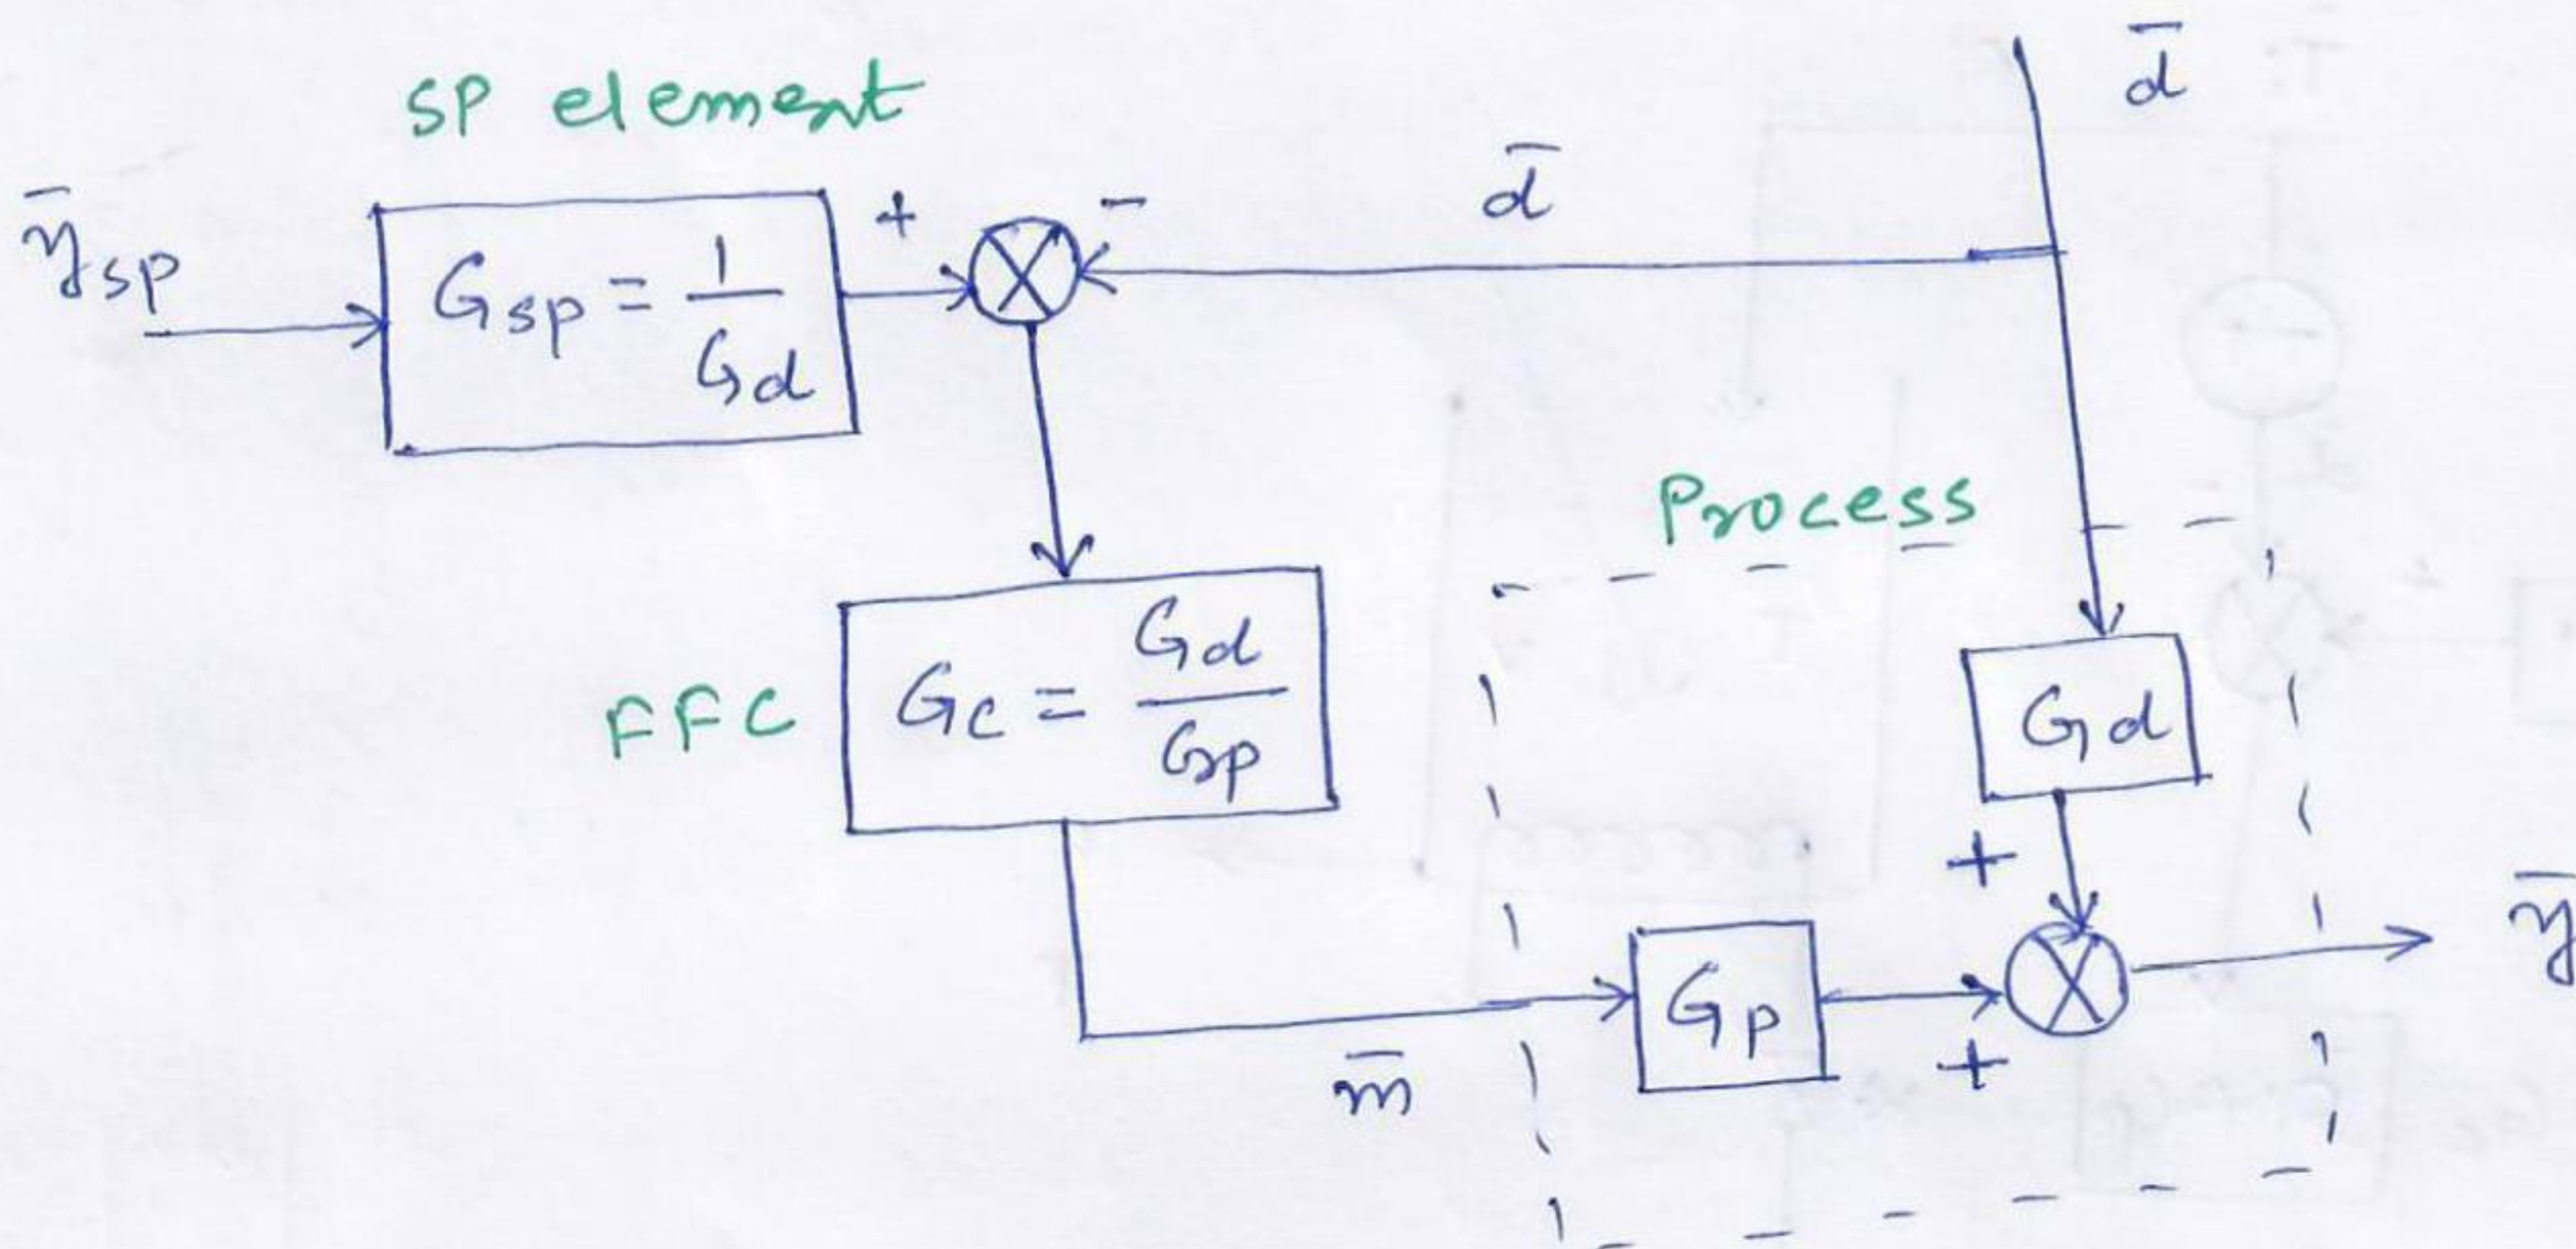 SP element
d̄
d̄
ȳsp
+
-
Gsp = 1/Gd
Process
FFC
Gc = Gd/Gp
Gd
+
ȳ
Gp
+
m̄